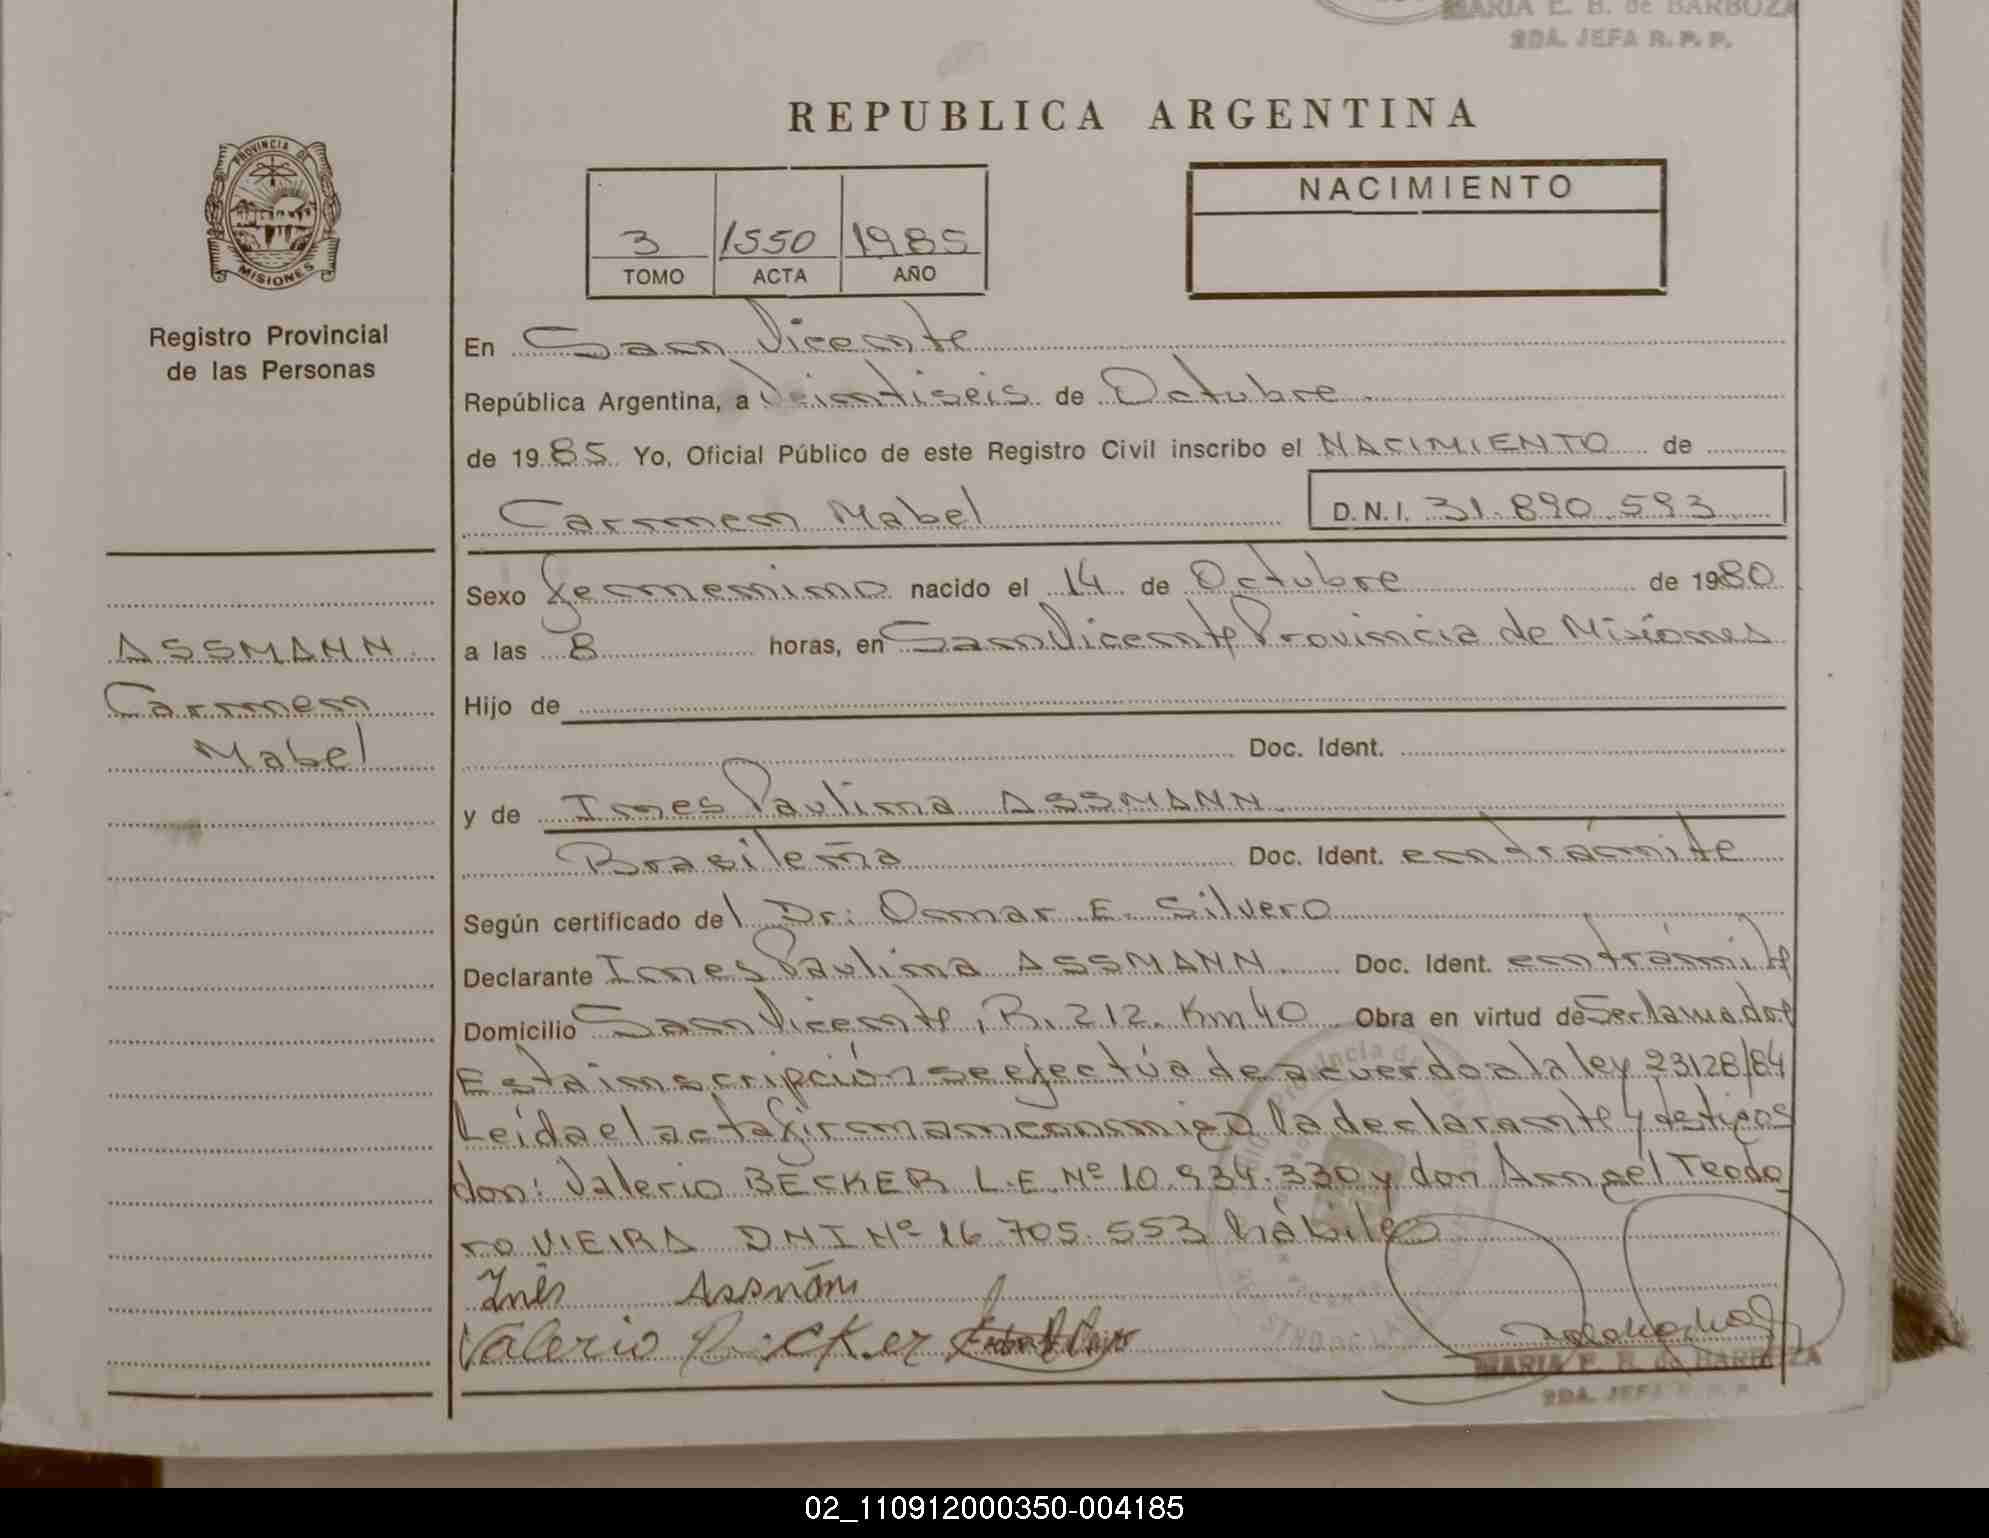 MARIA E. B. de BARBOZA
2DA. JEFA R. P. P.
REPUBLICA ARGENTINA
PROVINCIA DE
MISIONES
Registro Provincial
de las Personas
3 1550 1985
TOMO ACTA AÑO
NACIMIENTO
En San Vicente
República Argentina, a Veintiseis de Octubre
de 1985 Yo, Oficial Público de este Registro Civil inscribo el NACIMIENTO de
Carmen Mabel D.N.I. 31.890.593
ASSMANN
Carmen
Mabel
Sexo femenino nacido el 14 de Octubre de 1980
a las 8 horas, en San Vicente Provincia de Misiones
Hijo de
Doc. Ident.
y de Ines Paulina ASSMANN
Brasileña Doc. Ident. en trámite
Según certificado del Dr: Osmar E. Silvero
Declarante Ines Paulina ASSMANN Doc. Ident. en trámite
Domicilio San Vicente, R. 212. Km 40 Obra en virtud de Ser la madre
Esta inscripción se efectúa de acuerdo a la ley 23128/84
Leída el acta firman conmigo la declarante y testigos
don: Valerio BECKER L.E. Nº 10.934.330 y don Angel Teodo
ro VIEIRA DNI Nº 16.705.553 hábiles
Inês Assmán
Valerio Becker
MARIA E. B. de BARBOZA
2DA. JEFA R. P. P.
02_110912000350-004185